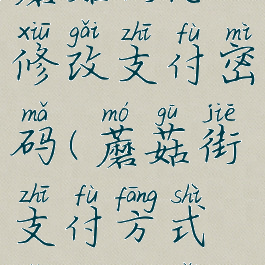 xiū gǎi zhī fù mì
修改支付密
mǎ mó gū jiē
码(蘑菇街
zhī fù fāng shì
支付方式